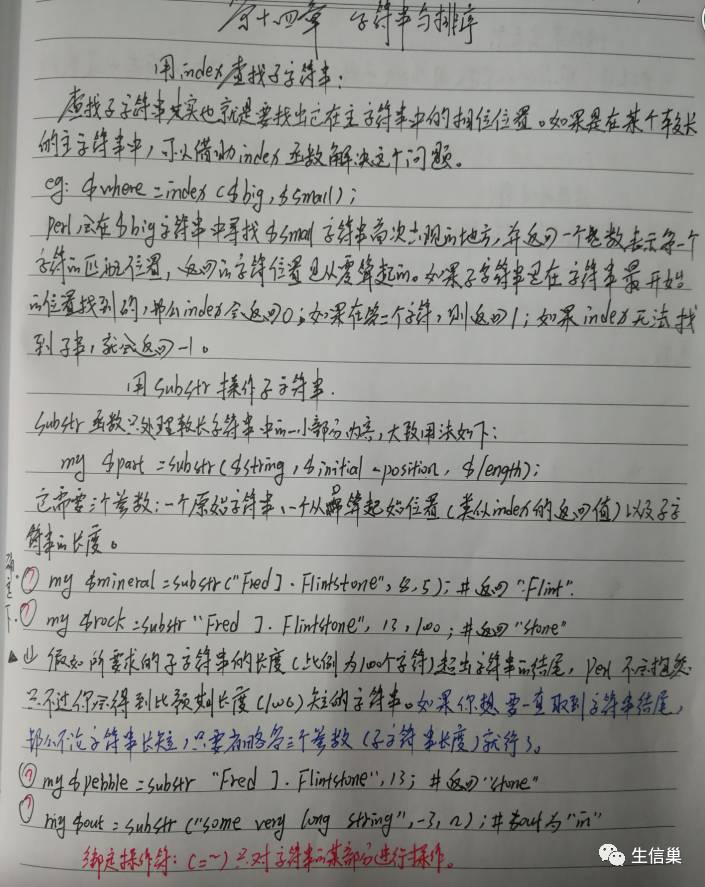 第十四章 字符串与排序
用index查找子字符串：
查找子字符串其实也就是要找出它在主字符串中的相位位置。如果是在某个较长
的主字符串中，可以借助index函数解决这个问题。
eg: $where = index ($big, $small);
perl会在$big字符串中寻找$small字符串首次出现的地方，并返回一个整数表示第一个
字符的匹配位置，返回的字符位置是从零算起的。如果子字符串是在字符串最开始
的位置找到的，那么index会返回0；如果在第二个字符，则返回1；如果index无法找
到子串，就会返回-1。
用substr操作子字符串.
substr函数只处理较长字符串中的一小部分内容，大致用法如下：
my $part = substr($string, $initial-position, $length);
它需要三个参数：一个原始字符串、一个从0算起起始位置（类似index的返回值）以及子字
符串的长度。
? my $mineral = substr("Fred J. Flintstone", 8, 5); #返回"Flint".
? my $rock = substr "Fred J. Flintstone", 13, 100; #返回"stone"
▲ ⑴ 假如所要求的子字符串的长度（此例为100个字符）超出字符串的结尾，perl不会抱怨
只不过你会得到比预期长度（100）短的字符串。如果你想要一直取到字符串结尾，
那么不论字符串长短，只要省略第三个参数（子字符串长度）就行了。
? my $pebble = substr "Fred J. Flintstone", 13; #返回"stone"
? my $out = substr("some very long string", -3, 2); #$out为"in"
绑定操作符：(=~)只对字符串的某部分进行操作。
生信巢